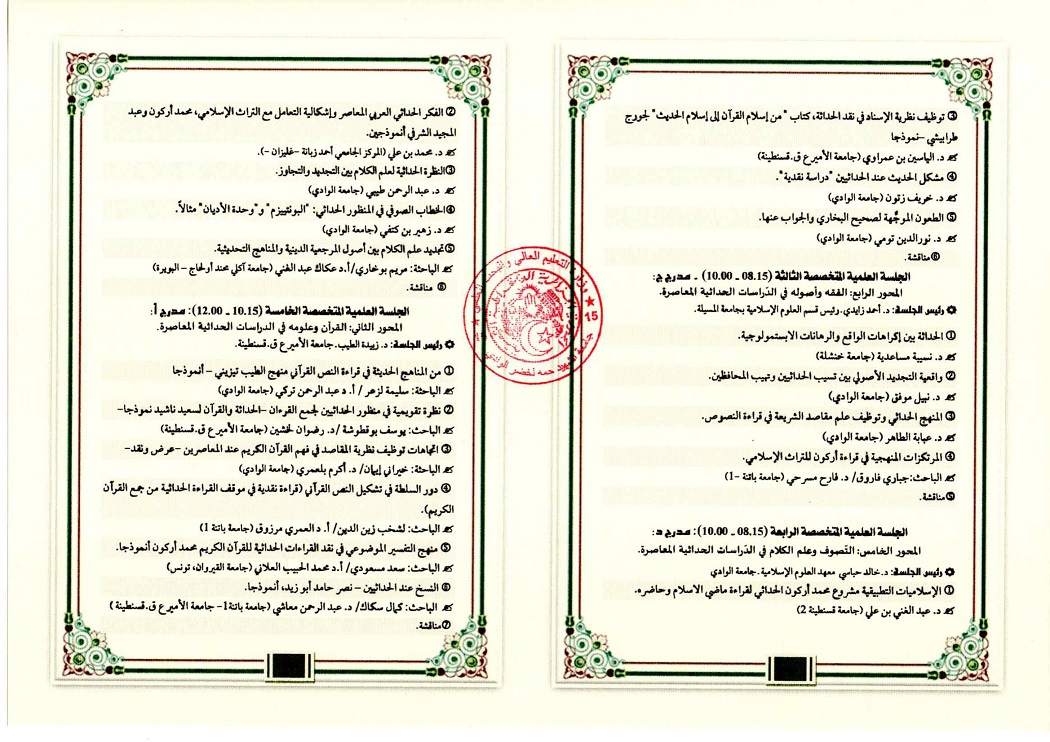 ③ توظيف نظرية الإسناد في نقد الحداثة، كتاب "من إسلام القرآن إلى إسلام الحديث" لجورج
طرابيشي –نموذجا
د. الياسين بن عمراوي (جامعة الأمير ع ق.قسنطينة)
④ مشكل الحديث عند الحداثيين "دراسة نقدية".
د. خريف زتون (جامعة الوادي)
⑤ الطعون الموجَّهة لصحيح البخاري والجواب عنها.
د. نورالدين تومي (جامعة الوادي)
⑥ مناقشة.
الجلسة العلمية المتخصصة الثالثة (08.15 ـ 10.00) ـ مدرج ج:
المحور الرابع: الفقه وأصوله في الدّراسات الحداثية المعاصرة.
رئيس الجلسة: د. أحمد زايدي.رئيس قسم العلوم الإسلامية بجامعة المسيلة.
① الحداثة بين إكراهات الواقع والرهانات الابستمولوجية.
د. نسيبة مساعدية (جامعة خنشلة)
② واقعية التجديد الأصولي بين تسيب الحداثيين وتهيب المحافظين.
د. نبيل موفق (جامعة الوادي)
③ المنهج الحداثي وتوظيف علم مقاصد الشريعة في قراءة النصوص.
د. عبابة الطاهر (جامعة الوادي)
④ المرتكزات المنهجية في قراءة أركون للتراث الإسلامي.
الباحث:جباري فاروق/ د. قارح مسرحي (جامعة باتنة –1)
⑤ مناقشة.
الجلسة العلمية المتخصصة الرابعة (08.15 ـ 10.00): مدرج د:
المحور الخامس: التّصوف وعلم الكلام في الدّراسات الحداثية المعاصرة.
رئيس الجلسة: د.خالد حباسي معهد العلوم الإسلامية.جامعة الوادي
① الإسلاميات التطبيقية مشروع محمد أركون الحداثي لقراءة ماضي الاسلام وحاضره.
د. عبد الغني بن علي (جامعة قسنطينة 2)
② الفكر الحداثي العربي المعاصر وإشكالية التعامل مع التراث الإسلامي، محمد أركون وعبد
المجيد الشرفي أنموذجين.
د. محمد بن علي (المركز الجامعي أحمد زبانة –غليزان –).
③ النظرة الحداثية لعلم الكلام بين التجديد والتجاوز.
د. عبد الرحمن طيبي (جامعة الوادي)
④ الخطاب الصوفي في المنظور الحداثي: "البونتييزم" و"وحدة الأديان" مثالاً.
د. زهير بن كتفي (جامعة الوادي)
⑤ تجديد علم الكلام بين أصول المرجعية الدينية والمناهج التحديثية.
الباحثة: مريم بوخاري/أ.د.عكاك عبد الغني (جامعة آكلي محند أولحاج – البويرة)
⑥ مناقشة.
الجلسة العلمية المتخصصة الخامسة (10.15 ـ 12.00): مدرج أ:
المحور الثاني: القرآن وعلومه في الدراسات الحداثية المعاصرة.
رئيس الجلسة: د. زبيدة الطيب.جامعة الأمير ع ق.قسنطينة.
① من المناهج الحديثة في قراءة النص القرآني منهج الطيب تيزيني – أنموذجا
الباحثة: سليمة لزهر / أ.د عبد الرحمن تركي (جامعة الوادي)
② نظرة تقويمية في منظور الحداثيين لجمع القرءان –الحداثة والقرآن لسعيد ناشيد نموذجا–
الباحث: يوسف بوقطوشة /د. رضوان لخشين (جامعة الأمير ع ق.قسنطينة)
③ اتجاهات توظيف نظرية المقاصد في فهم القرآن الكريم عند المعاصرين –عرض ونقد–
الباحثة: خيراني إيمان/ د. أكرم بلعمري (جامعة الوادي)
④ دور السلطة في تشكيل النص القرآني (قراءة نقدية في موقف القراءة الحداثية من جمع القرآن
الكريم).
الباحث: لشخب زين الدين/ أ. د العمري مرزوق (جامعة باتنة 1)
⑤ منهج التفسير الموضوعي في نقد القراءات الحداثية للقرآن الكريم محمد أركون أنموذجا.
الباحث: سعد مسعودي/ أ.د محمد الحبيب العلاني (جامعة القيروان، تونس)
⑥ النسخ عند الحداثيين – نصر حامد أبو زيد، أنموذجا.
الباحث: كمال سكاك/ د. عبد الرحمن معاشي (جامعة باتنة1– جامعة الأمير ع ق.قسنطينة )
⑦ مناقشة.
وزارة التعليم العالي والبحث العلمي
جامعة الشهيد حمه لخضر الوادي
15